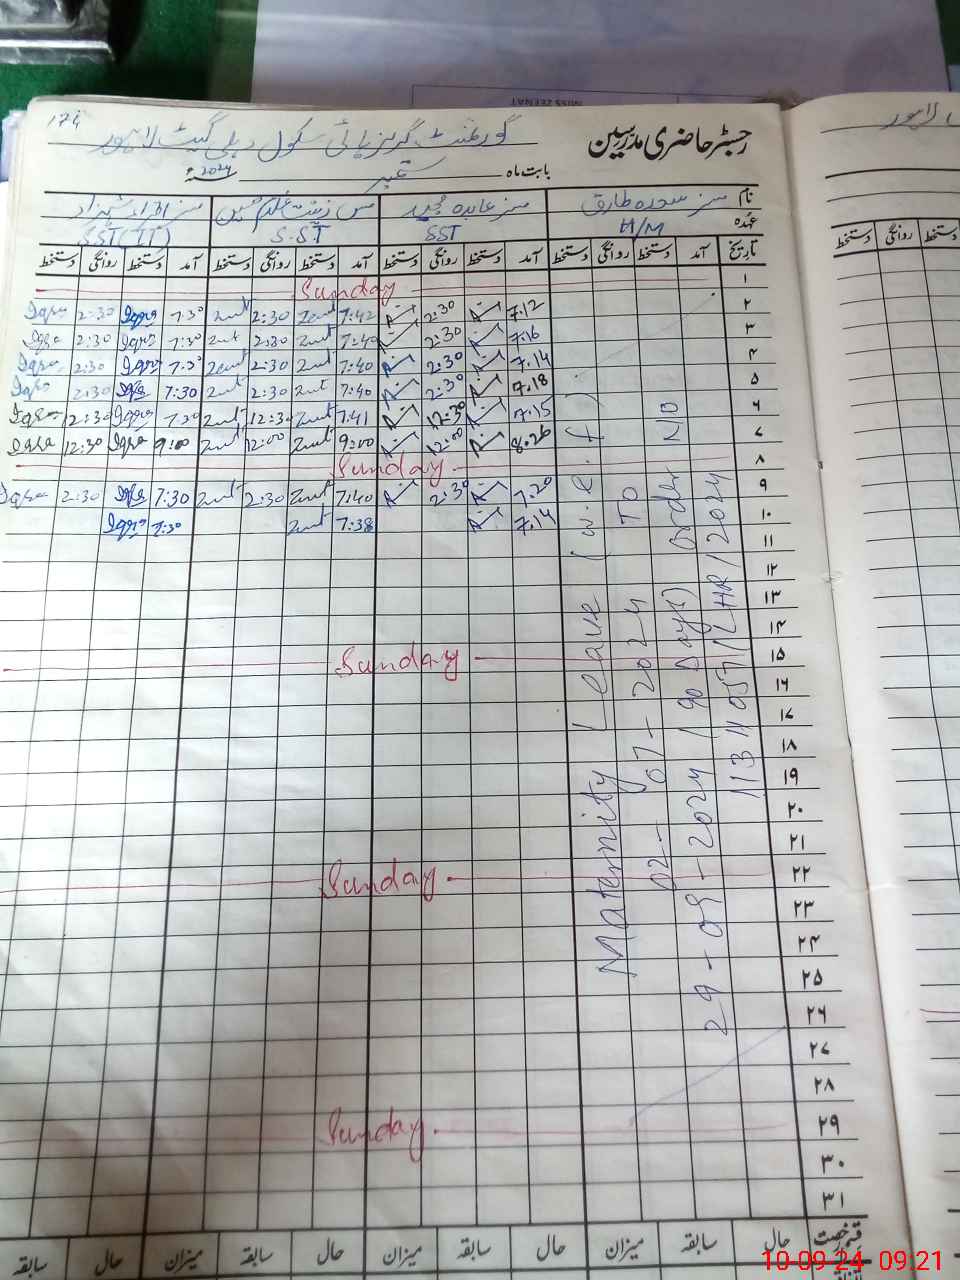 MISS ZEENAT
174
گورنمنٹ گرلز ہائی سکول دہلی گیٹ لاہور
رجسٹر حاضری مدرسین
بابت ماہ ستمبر 2024ء
نام مسز سعدیہ طارق مسز عابدہ مجید مس زینت غلام حسین مسز اقراء شہزاد
عہدہ H/M SST S.ST SST(IT)
تاریخ آمد دستخط روانگی دستخط آمد دستخط روانگی دستخط آمد دستخط روانگی دستخط آمد دستخط روانگی دستخط
۱ Sunday
۲ 7.12 2:30 7:42 Zent 2:30 Zent 7:30 Iqra 2:30 Iqra
۳ 7.16 2:30 7:40 Zent 2:30 Zent 7:30 Iqra 2:30 Iqra
۴ 7.14 2:30 7:40 Zent 2:30 Zent 7:30 Iqra 2:30 Iqra
۵ 7.18 2:30 7:40 Zent 2:30 Zent 7:30 Iqra 2:30 Iqra
۶ 7.15 12:30 7:41 Zent 12:30 Zent 7:30 Iqra 12:30 Iqra
۷ 8.26 12:00 9:00 Zent 12:00 Zent 9:00 Iqra 12:30 Iqra
۸ Sunday
۹ 7.20 2:30 7:40 Zent 2:30 Zent 7:30 Iqra 2:30 Iqra
۱۰ 7.14 7:38 Zent 7:30 Iqra
۱۱
۱۲
۱۳
۱۴
۱۵ Sunday
۱۶
۱۷
۱۸
۱۹
۲۰
۲۱
۲۲ Sunday
۲۳
۲۴
۲۵
۲۶
۲۷
۲۸
۲۹ Sunday.
۳۰
۳۱
Maternity Leave (w.e.f)
02-07-2024 TO
29-09-2024 (90 Days) Order NO
1134057/LHR/2024
حال سابقہ میزان حال سابقہ میزان حال سابقہ میزان حال سابقہ
لاہور
دستخط روانگی دستخط
10-09-24 09:21